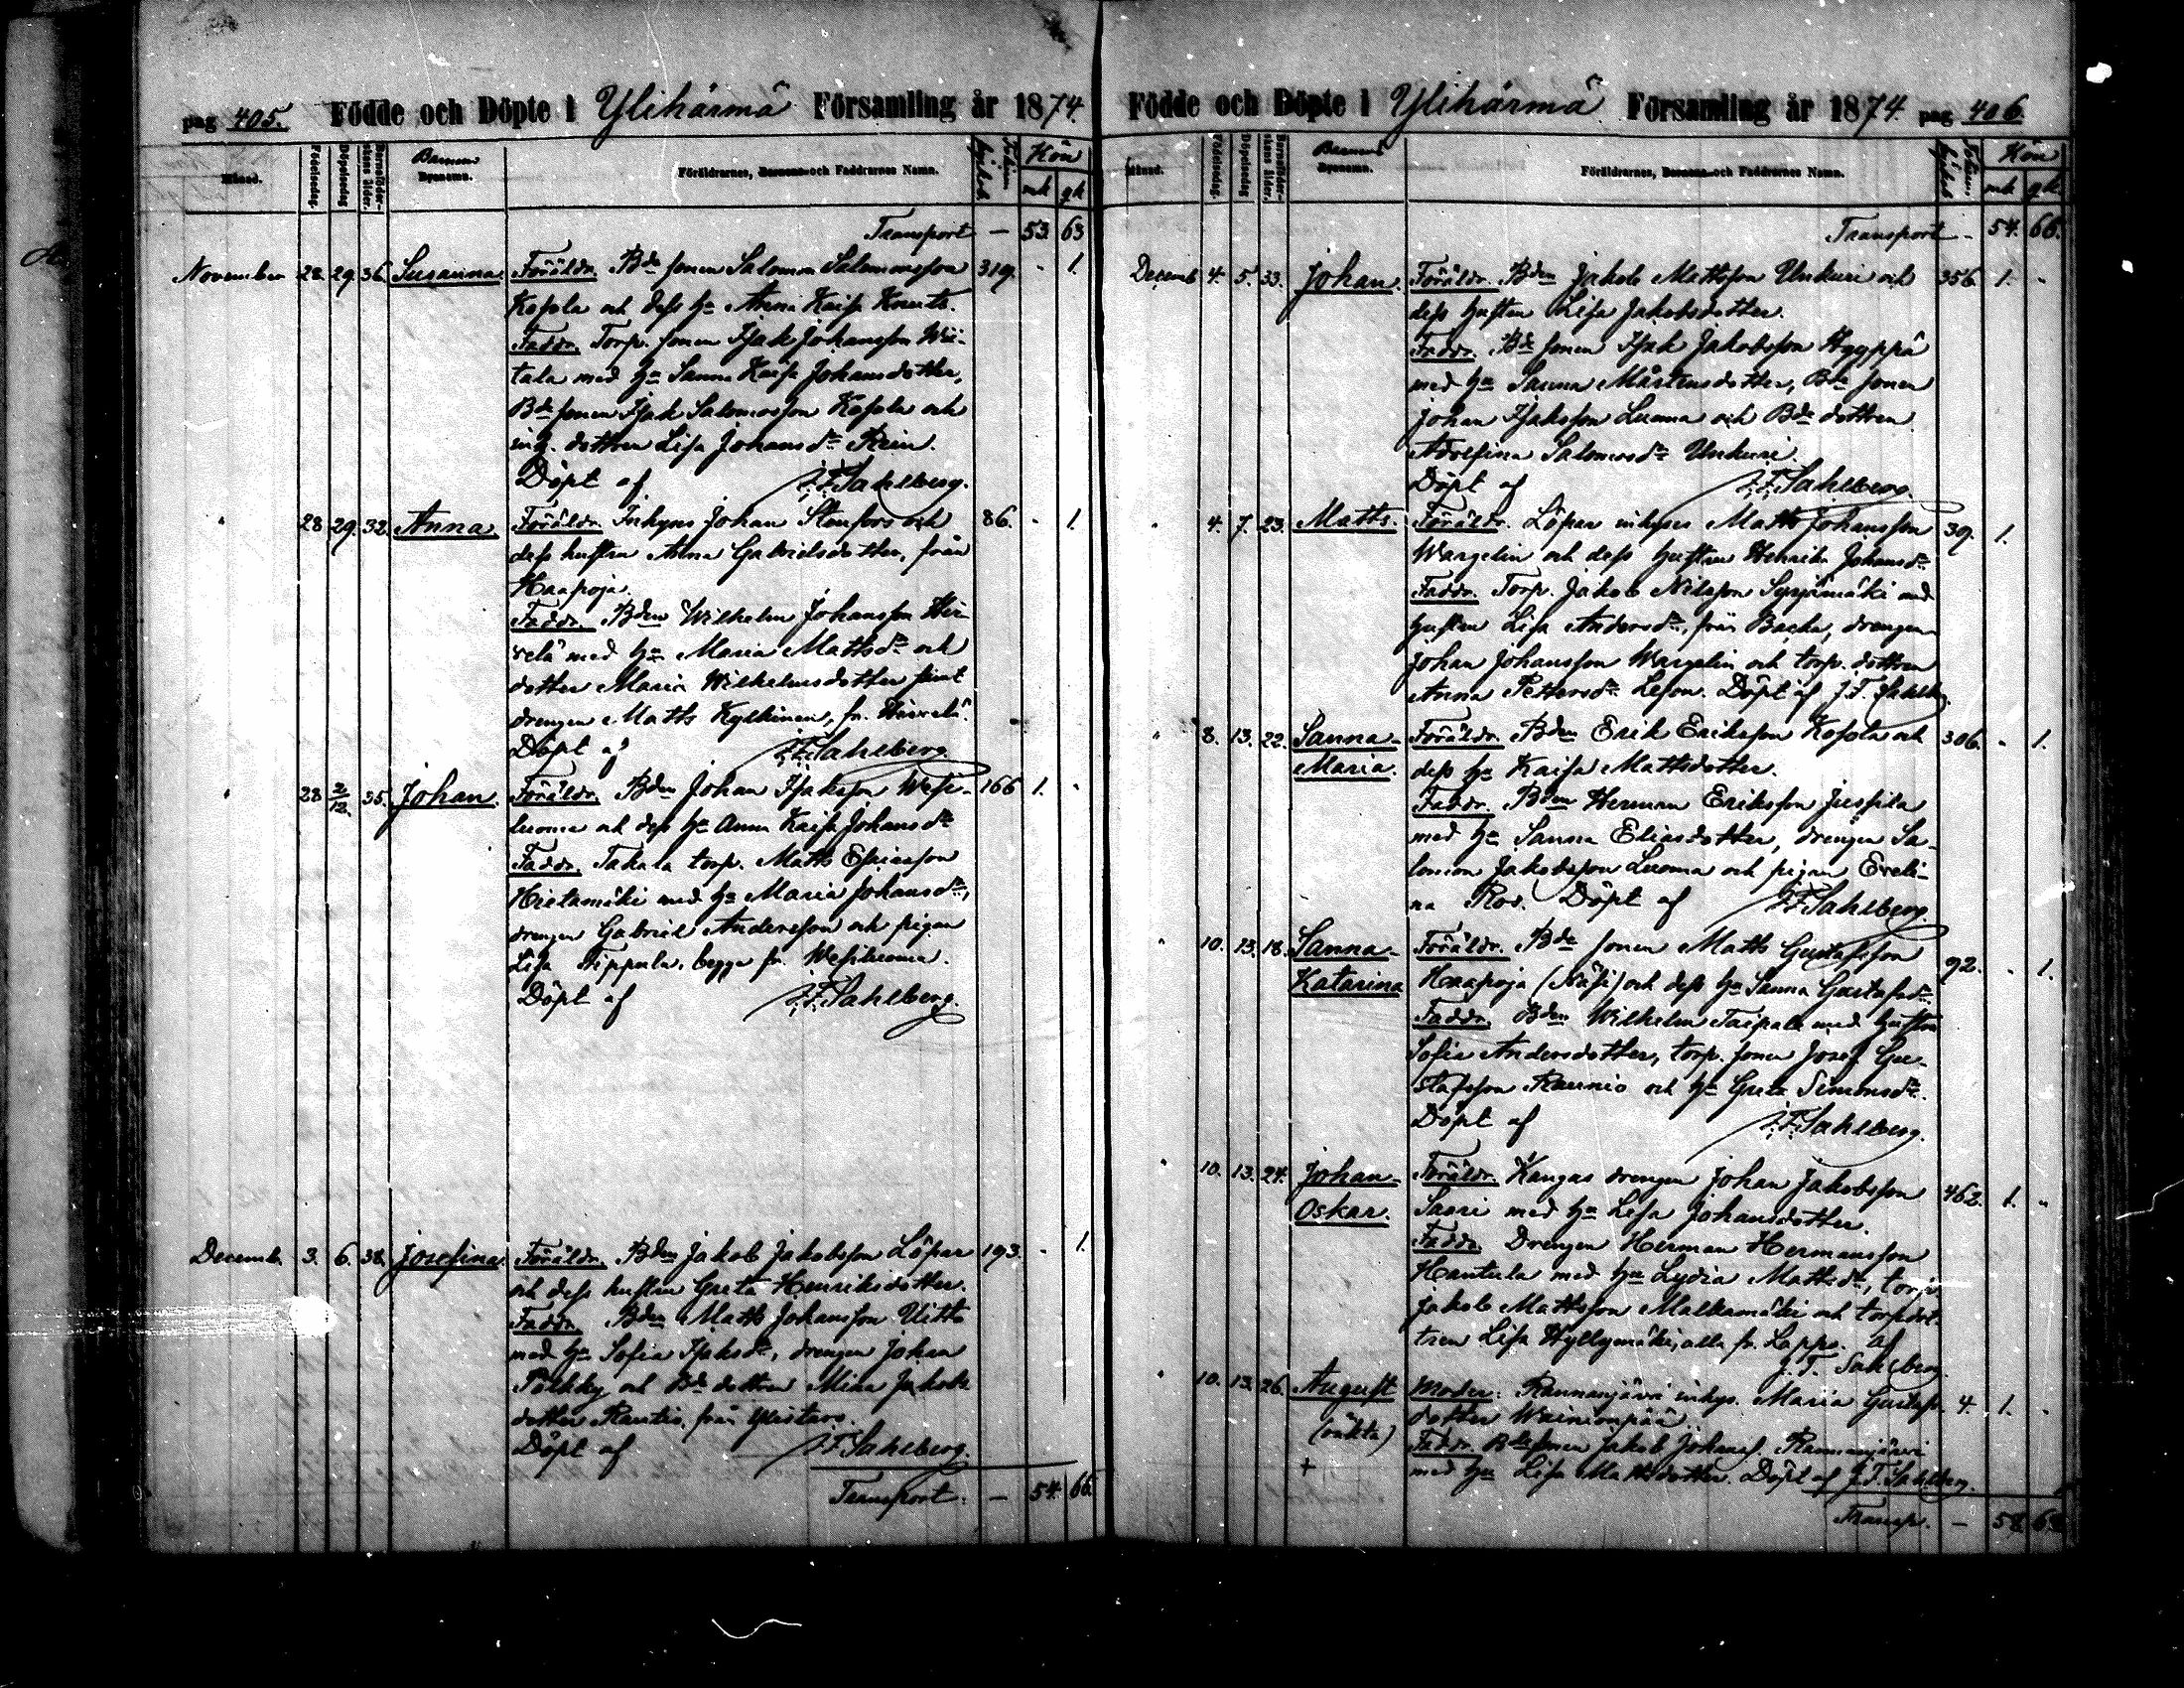 pag 405. Födde och Döpte i Ylihärmä Församling år 1874
Månad. Födelsedag. Döpelsedag Barnaföderskans ålder. Barnens Byenamn. Föräldrarnes, Barnens och Faddrarnes Namn. Kön
mk. qk.
Transport — 53. 63
November 28. 29. 36. Susanna. Föräldr. Bde sonen Salomon Salomonsson 319. - 1.
Kosola och dess hu Anna Kaisa Knuts.
Faddr. Torp. sonen Isak Johansson Wii-
tala med hu Sanna Kaisa Johansdotter,
Bde sonen Isak Salomonsson Kosola och
ing. dottren Lisa Johansdr Rein.
Döpt af J. F. Sahlberg.
28 29. 32. Anna. Föräldr. Inhyses Johan Stenfors och 86. - 1.
dess hustru Anna Gabrielsdotter, från
Haapoja.
Faddr. Bden Wilhelm Johansson Här-
relä med hu Maria Mattsdr och
dotter Maria Wilhelmsdotter samt
drengen Matts Kylkinen, fr. Härrelä.
Döpt af J. F. Sahlberg.
28 2/12. 35. Johan. Föräldr. Bden Johan Isaksson Wesi- 166 1. -
luoma och dess hu Anna Kaisa Johansdr
Faddr. Takala torp. Matts Esaiasson
Hietamäki med hu Maria Johansdr,
drengen Gabriel Andersson och pigan
Lisa Tippula, begge fr. Wesiluoma.
Döpt af J. F. Sahlberg.
Decemb. 3. 6. 38. Josefina. Föräldr. Bden Jakob Jakobsson Löpar 193. - 1.
och dess hustru Greta Henriksdotter.
Faddr. Bden Matts Johansson Uitto
med hu Sofia Isaksdr, drengen Johan
Pölkky och Bde dottren Mina Jakobs
dotter Rantio, från Ylistaro.
Döpt af J. F. Sahlberg.
Transport. — 54. 66.
Födde och Döpte i Ylihärmä Församling år 1874. pag 406.
Månad. Födelsedag. Döpelsedag Barnaföderskans ålder. Barnens Byenamn. Föräldrarnes, Barnens och Faddrarnes Namn. Kön
mk. qk.
Transport - 54. 66.
Decemb 4. 5. 33. Johan. Föräldr. Bden Jakob Mattsson Unkuri och 356. 1. -
dess hustru Lisa Jakobsdotter.
Faddr. Bde sonen Isak Jakobsson Hyyppä
med hu Sanna Mårtensdotter, Bde sonen
Johan Isaksson Luoma och Bde dottren
Adolfina Salomonsdr Unkuri.
Döpt af J. F. Sahlberg.
4. 7. 23. Matts. Föräldr. Löpar inhyses Matts Johansson 39. 1.
Wargelin och dess hustru Henrika Johansdr
Faddr. Torp. Jakob Nilsson Sysjämäki med
hustru Lisa Andersdr, från Backa, drengen
Johan Johansson Wargelin och torp. dottren
Anna Pettersdr Leson. Döpt af J. F. Sahlberg.
8. 13. 22. Sanna- Föräldr. Bden Erik Eriksson Kosola och 306. - 1.
Maria. dess hu Kaisa Mattsdotter.
Faddr. Bden Herman Eriksson Jussila
med hu Sanna Eliasdotter, drengen Sa-
lomon Jakobsson Luoma och pigan Eveli-
na Ros. Döpt af J. F. Sahlberg.
10. 13. 18. Sanna- Föräldr. Bde sonen Matts Gustafsson 92. - 1.
Katarina Haapoja (Käsi) och dess hu Sanna Gustafsdr
Faddr. Bden Wilhelm Taipale med hustru
Sofia Andersdotter, torp. sonen Josef Gu-
stafsson Raunio och hu Greta Simonsdr.
Döpt af J. F. Sahlberg.
10. 13. 24. Johan- Föräldr. Kangas drengen Johan Jakobsson 462. 1. -
Oskar. Saari med hu Lisa Johansdotter.
Faddr. Drengen Herman Hermansson
Hantula med hu Lydia Mattsdr, torp.
Jakob Mattsson Malkamäki och torpdot-
tren Lisa Hyllymäki, alla fr. Lappo. af
J. F. Sahlberg
10. 13. 26. August Moder: Rannanjärvi inhys. Maria Gustafs- 4. 1. -
(oäkta) dotter Wainionpää.
Faddr. Bde sonen Jakob Johanss. Rannanjärvi
+ med hu Lisa Mattsdotter. Döpt af J. F. Sahlberg.
Transp. — 58 68